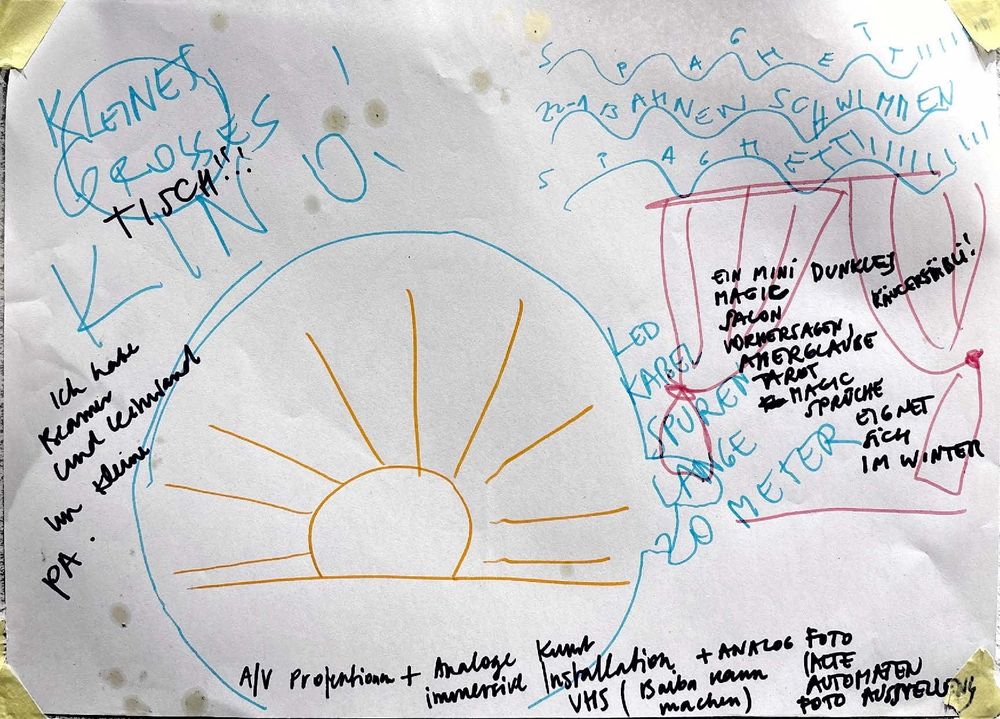 KLEINES
GROSSES
+ TISCH!!!
KINO!
SPAGHETT!!!!
22-1 BAHNEN SCHWIMMEN
SPAGHETTI!!!!!!!!
EIN MINI DUNKLES
MAGIC
SALON
VORHERSAGEN,
ABERGLAUBE
TAROT
MAGIC
SPRÜCHE
EIGNET
SICH
IM WINTER
LED
KABEL
SPUREN
LANGE
20 METER
Ich habe
Beamer
und Leinwand
un kleine
PA.
A/V Projektionen + Analoge Kunst
immersive Installation
VHS ( kann
machen)
+ ANALOG FOTO
(ALTE
AUTOMATEN
FOTO AUSSTELLUNG